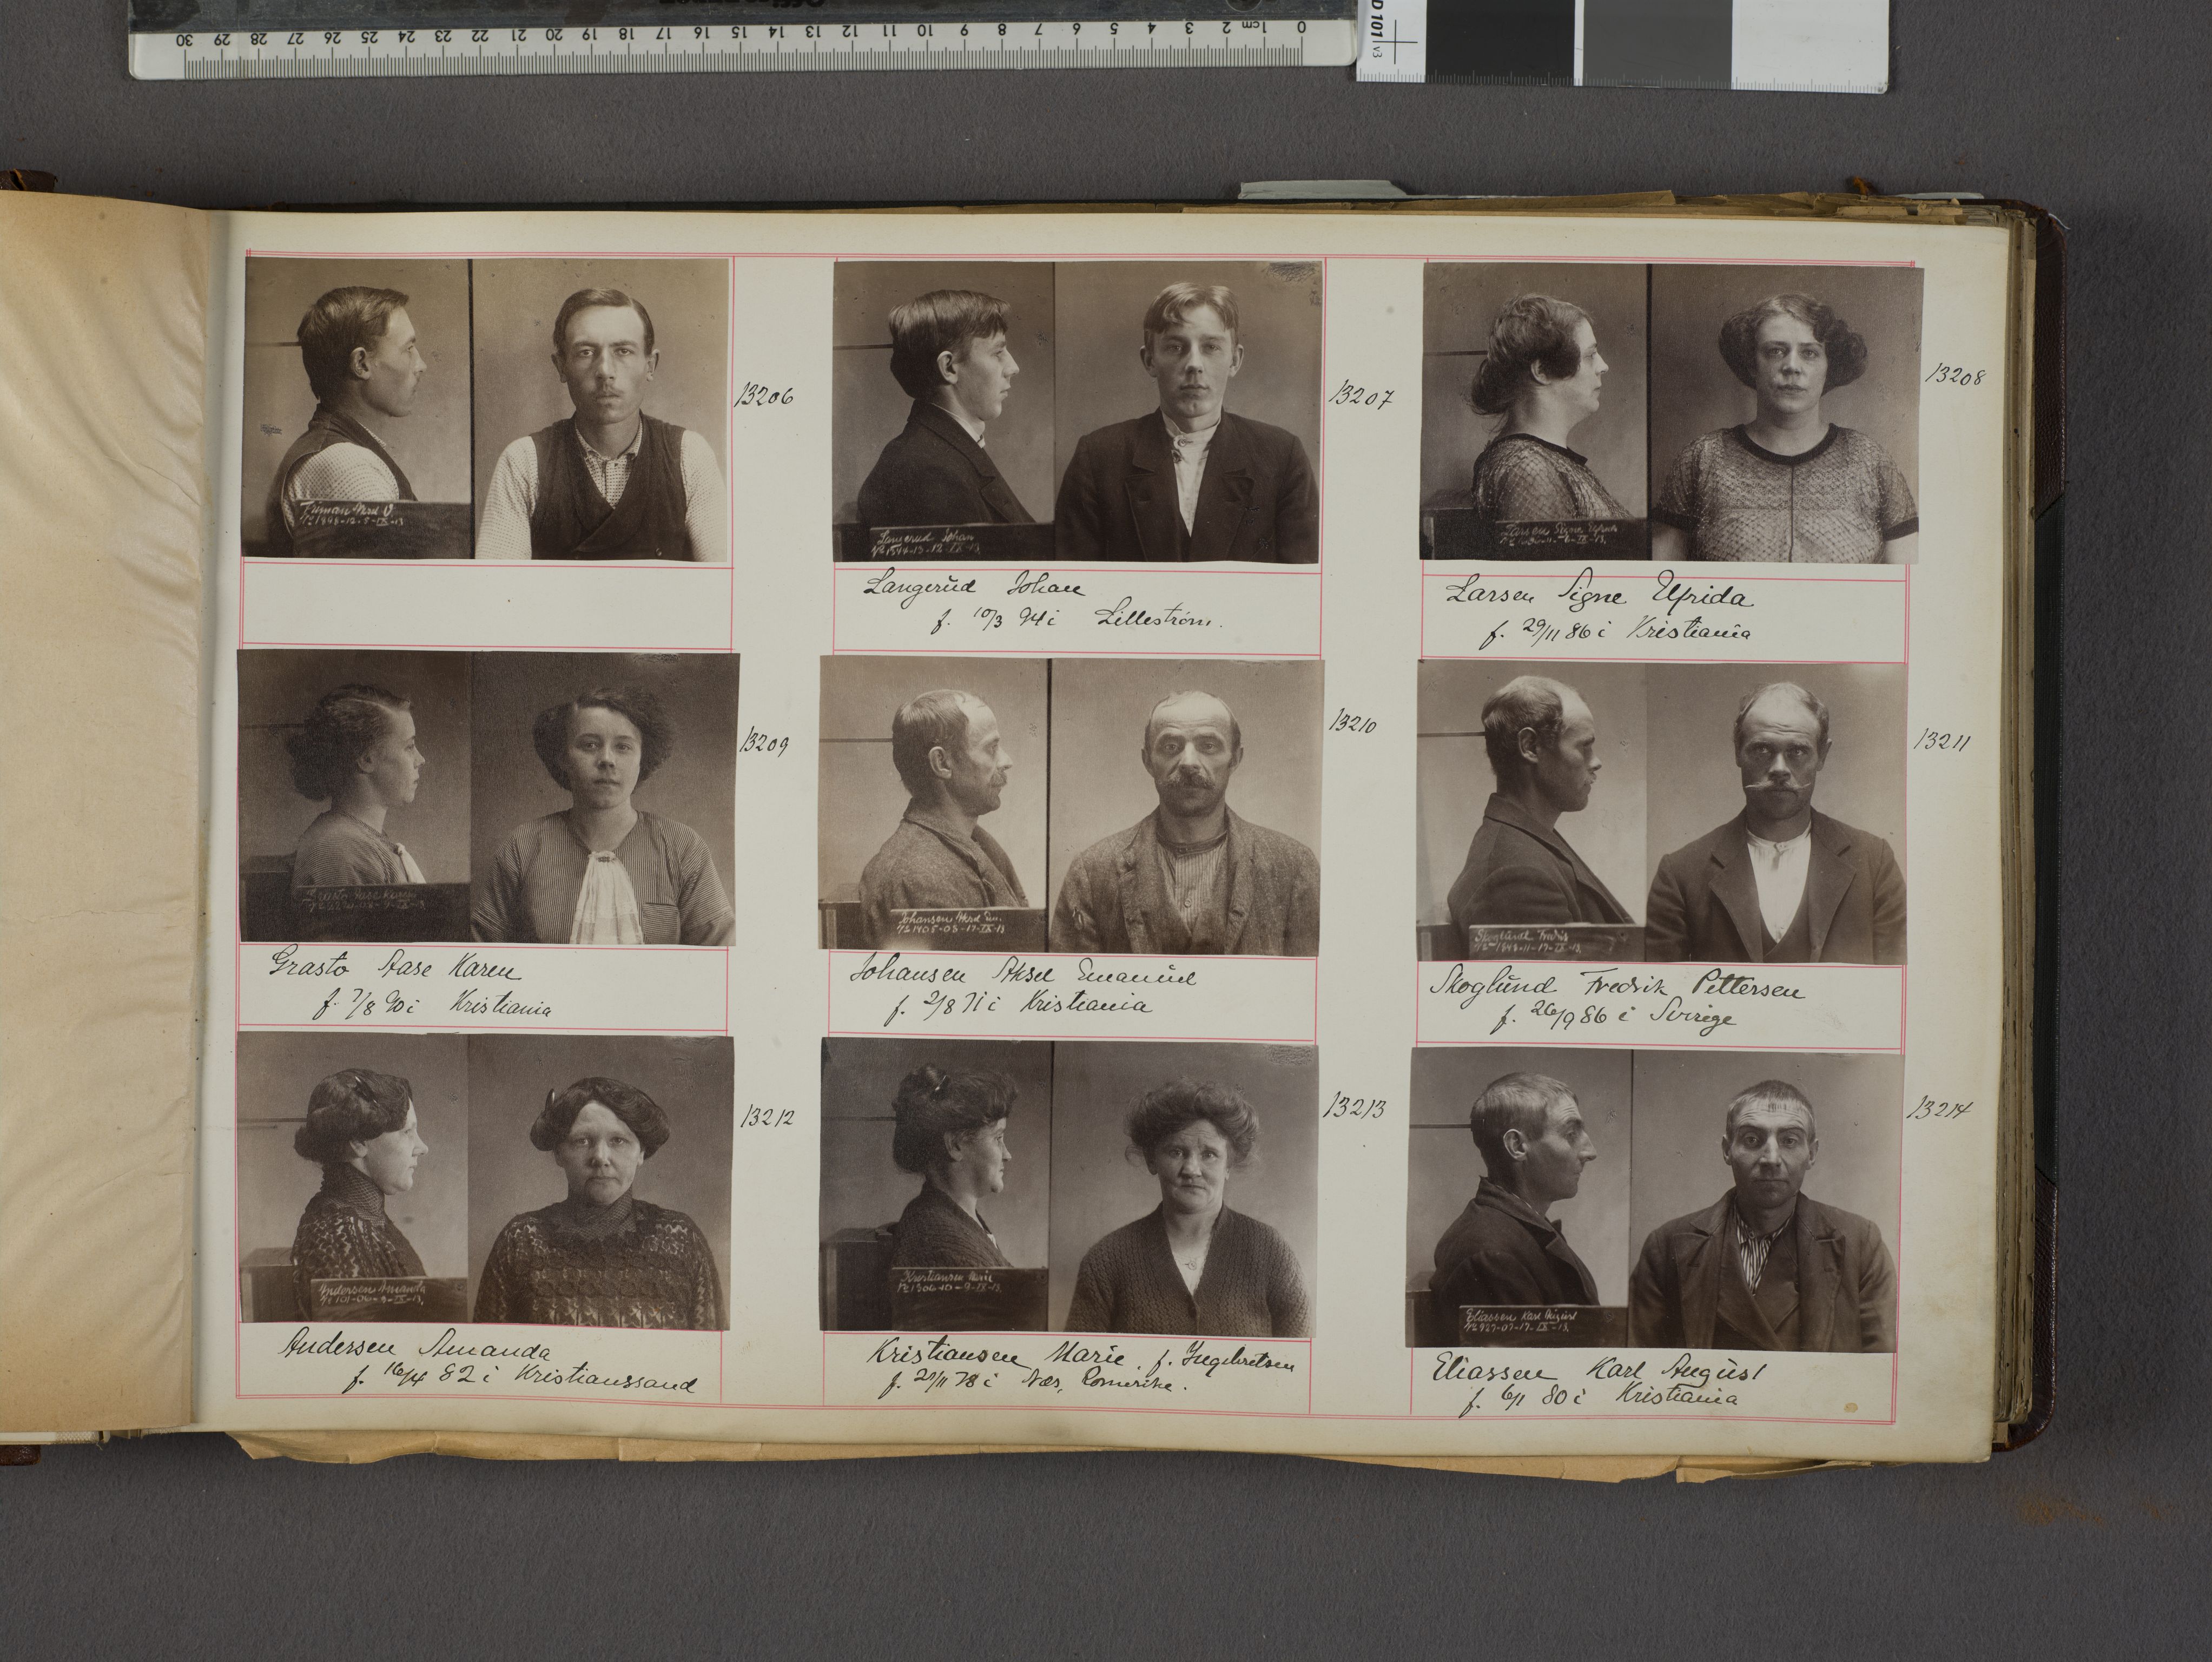 0 1cm 2 3 4 5 6 7 8 9 10 11 12 13 14 15 16 17 18 19 20 21 22 23 24 25 26 27 28 29 30
D 101 v3
13206
13207
Langerud Johan
Langerud Johan
f. 10/3 94 i Lillestrøm.
13208
Larsen Signe
Larsen Signe Elfrida
f. 29/11 86 i Kristiania
13209
Grasto Aase Karen
Grasto Aase Karen
f. 7/8 90 i Kristiania
13210
Johansen Aksel Em.
№ 1405-03-17-IX-13
Johansen Aksel Emanuel
f. 2/8 71 i Kristiania
13211
Skoglund Fredrik
Skoglund Fredrik Pettersen
f. 26/9 86 i Sverige
13212
Andersen Amanda
Andersen Amanda
f. 16/4 82 i Kristianssand
13213
Kristiansen Marie
№ 1306-10-9-IX-13
Kristiansen Marie. f. Ingebretsen
f. 29/11 78 i Næs, Romerike.
13214
Eliassen Karl August
№ 927-07-17-IX-13
Eliassen Karl August
f. 6/1 80 i Kristiania